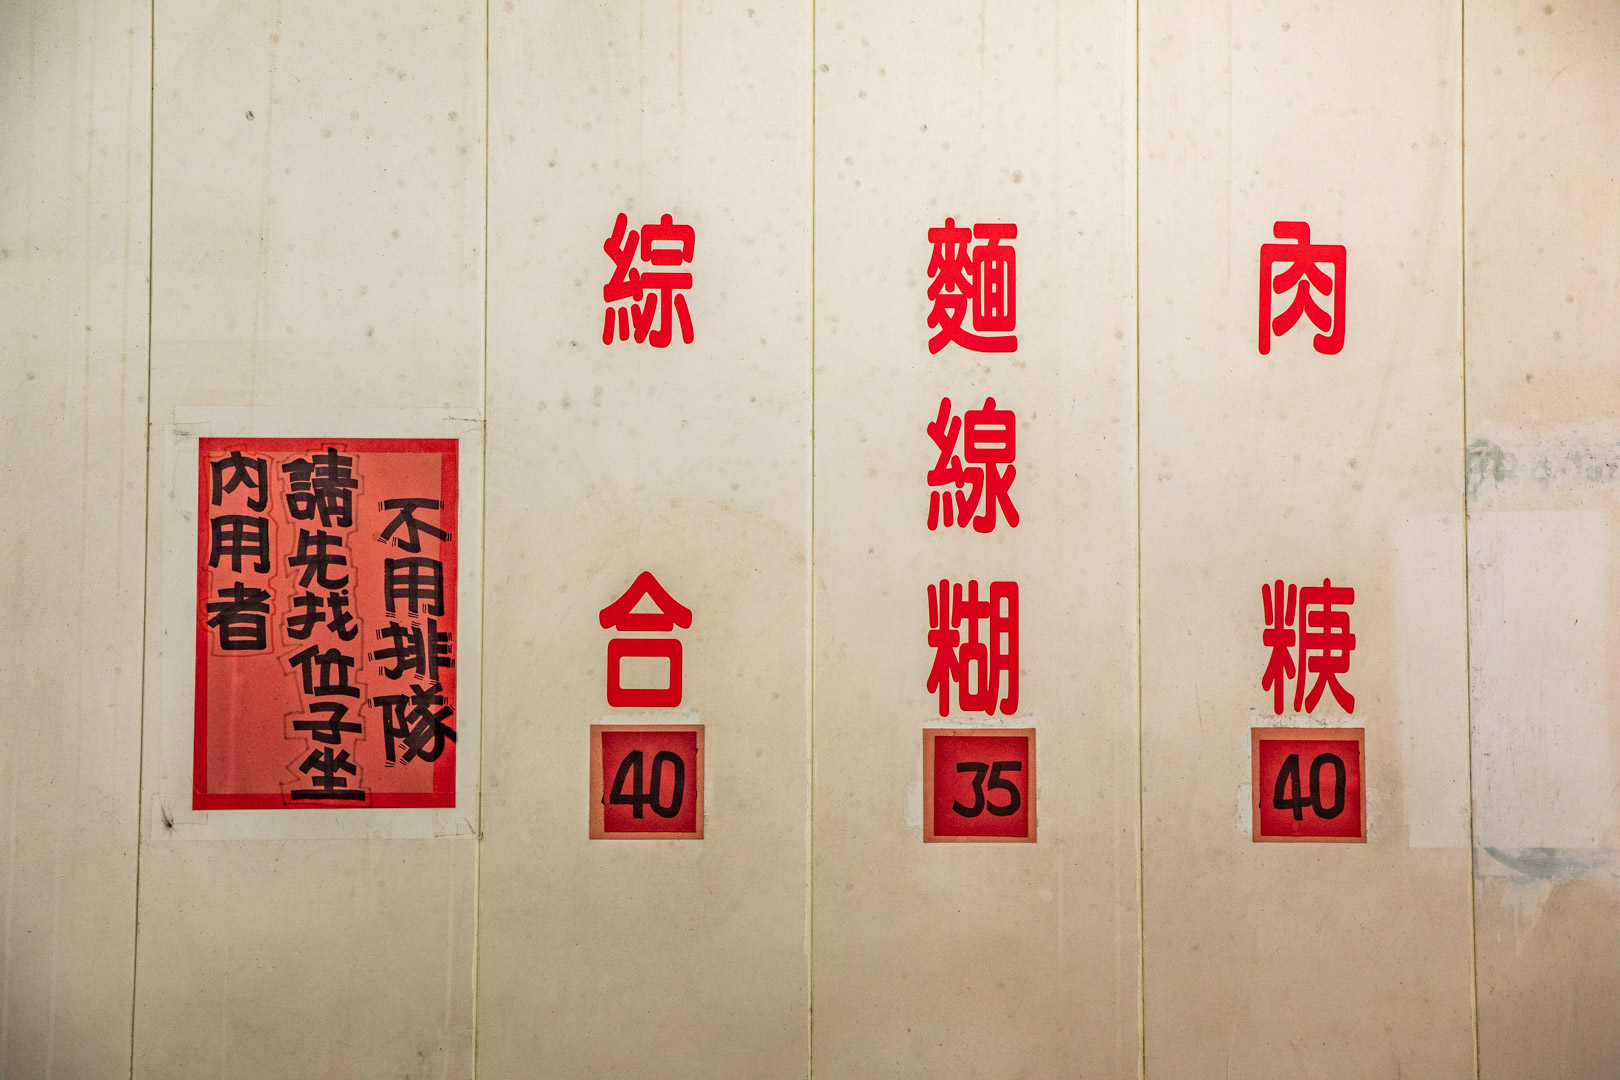 肉
40
麵線糊
35
綜合
40
內用者
請先找位子坐
不用排隊